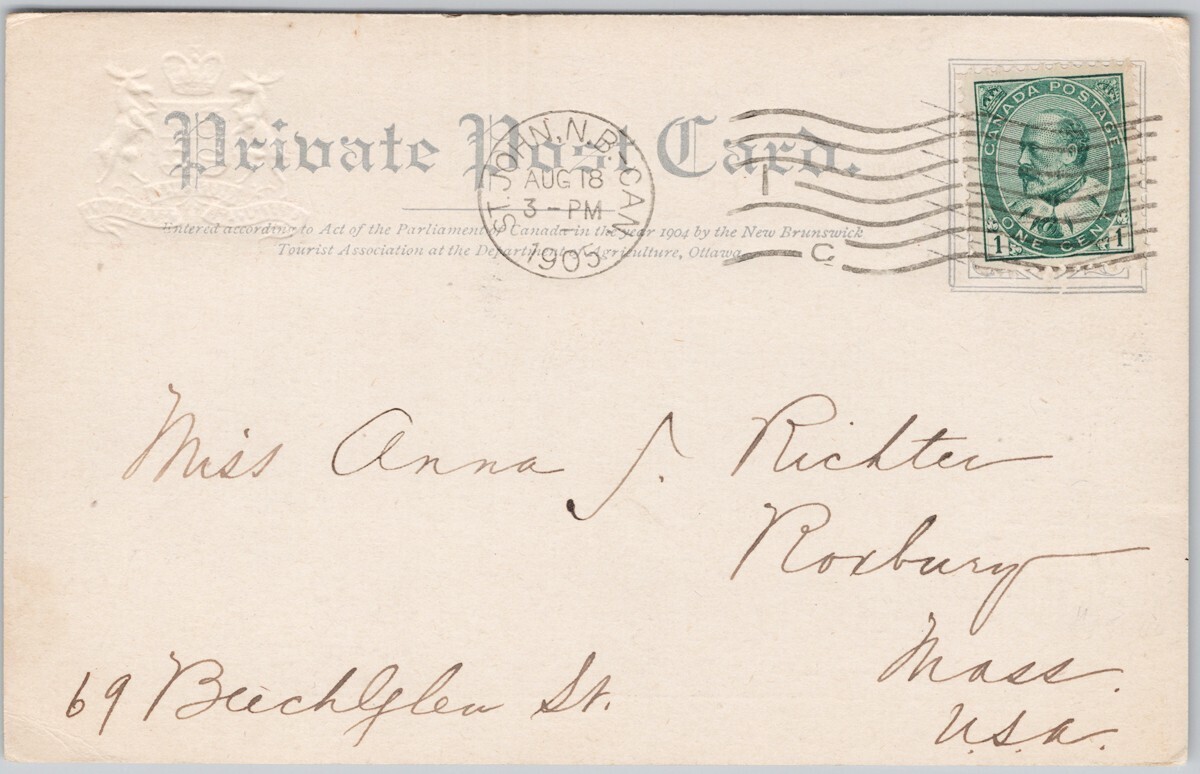 Private Post Card.
Entered according to Act of the Parliament of Canada in the year 1904 by the New Brunswick
Tourist Association at the Department of Agriculture, Ottawa
ST. JOHN. N.B. CAN
AUG 18
3 - PM
1905
I
C
CANADA POSTAGE
1 ONE CENT 1
Miss Anna J. Richter
Roxbury
Mass.
U.S.A.
69 BeechGlen St.